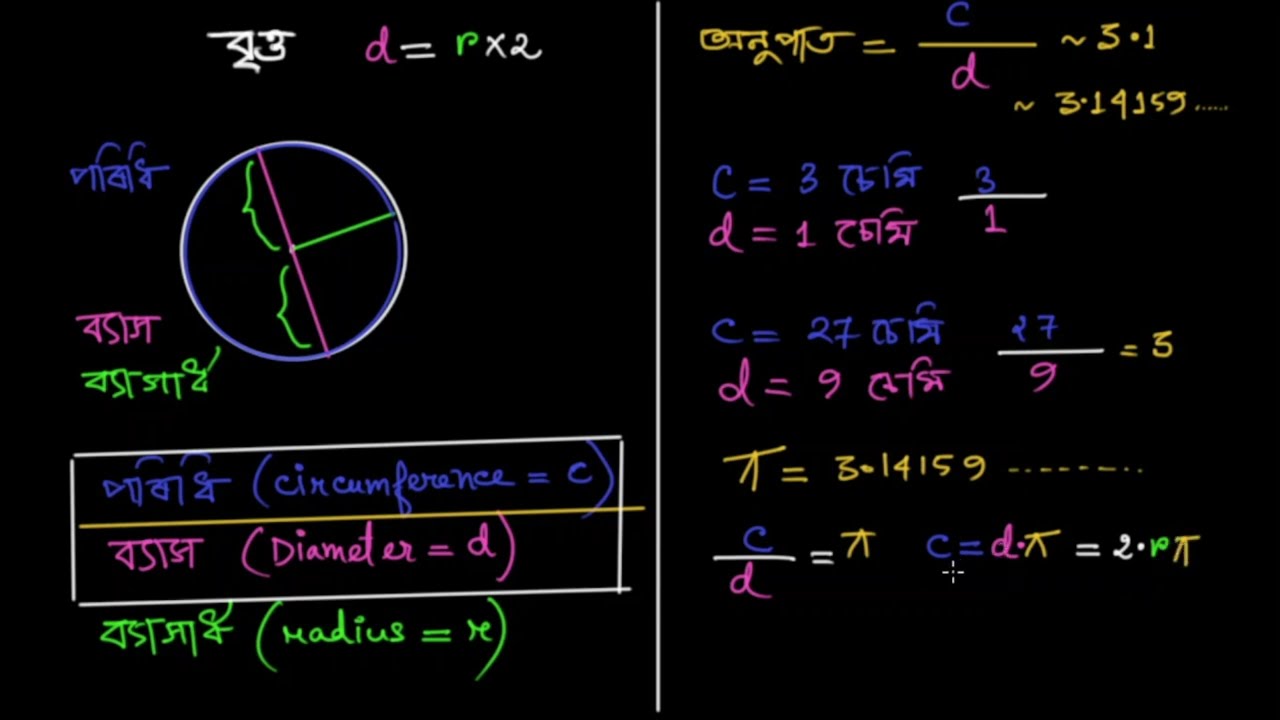 বৃত্ত d = r×2
পৰিধি
ব্যাস
ব্যাসাৰ্ধ
পৰিধি (circumference = c)
ব্যাস (Diameter = d)
ব্যাসাৰ্ধ (radius = r)
অনুপাত = c/d ~ 3.1
~ 3.14159.....
C = 3 চেমি 3/1
d = 1 চেমি
C = 27 চেমি 27/9 = 3
d = 9 চেমি
π = 3.14159 ---------
c/d = π C = d·π = 2·rπ